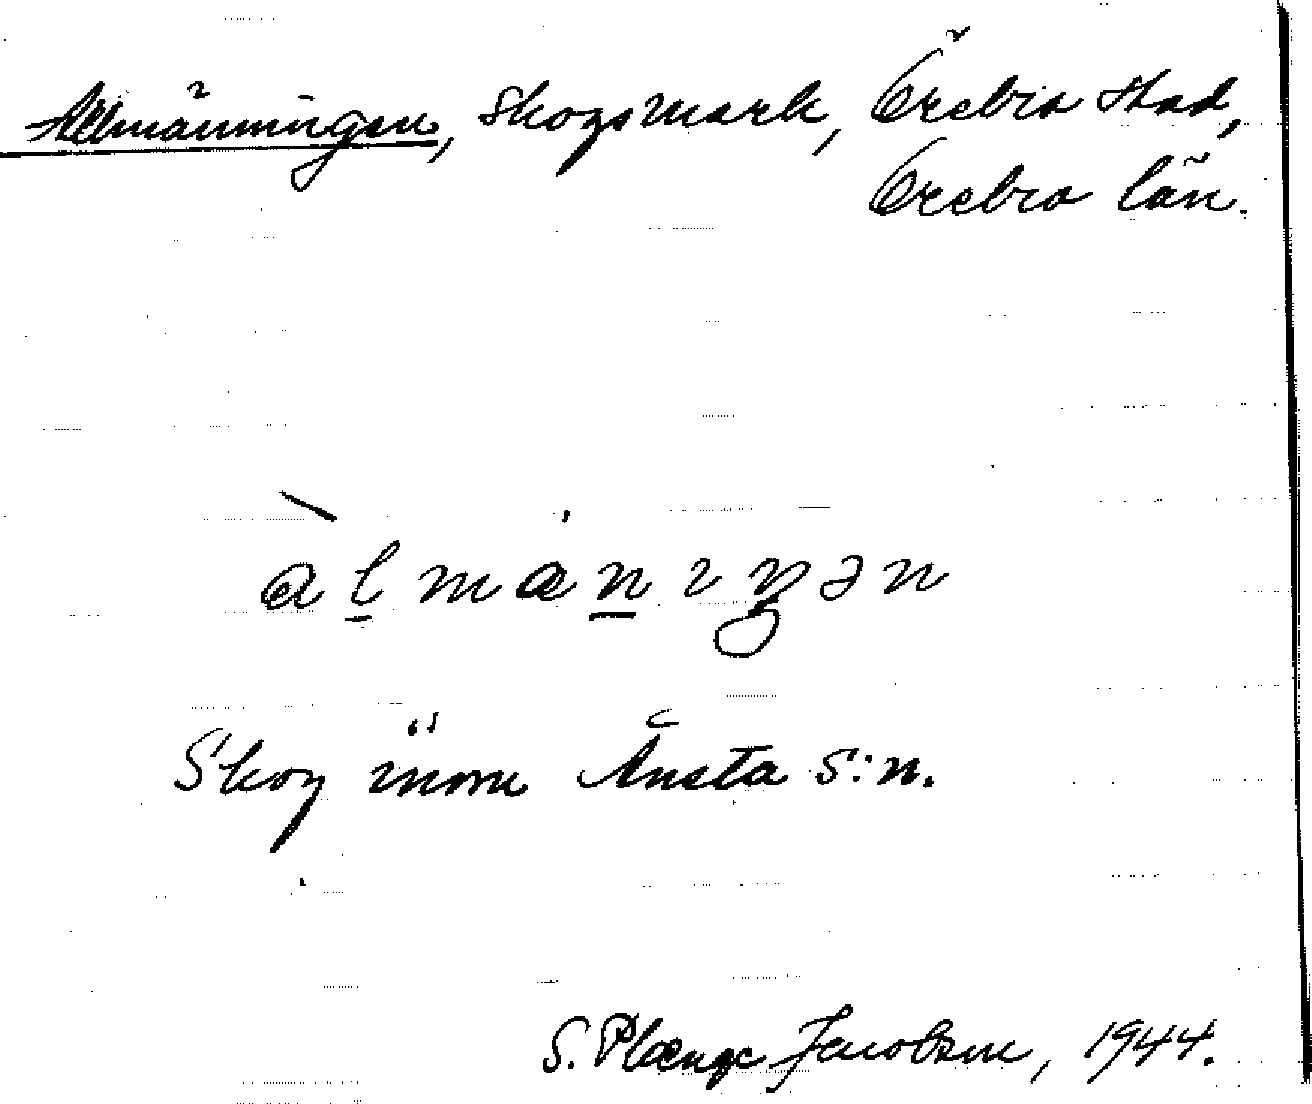 Allmänningen, skogsmark, Örebro stad,
Örebro län.
àl̲mán̲ıŋən
Skog inom Ånsta s:n.
S. Plænge Jacobson, 1944.